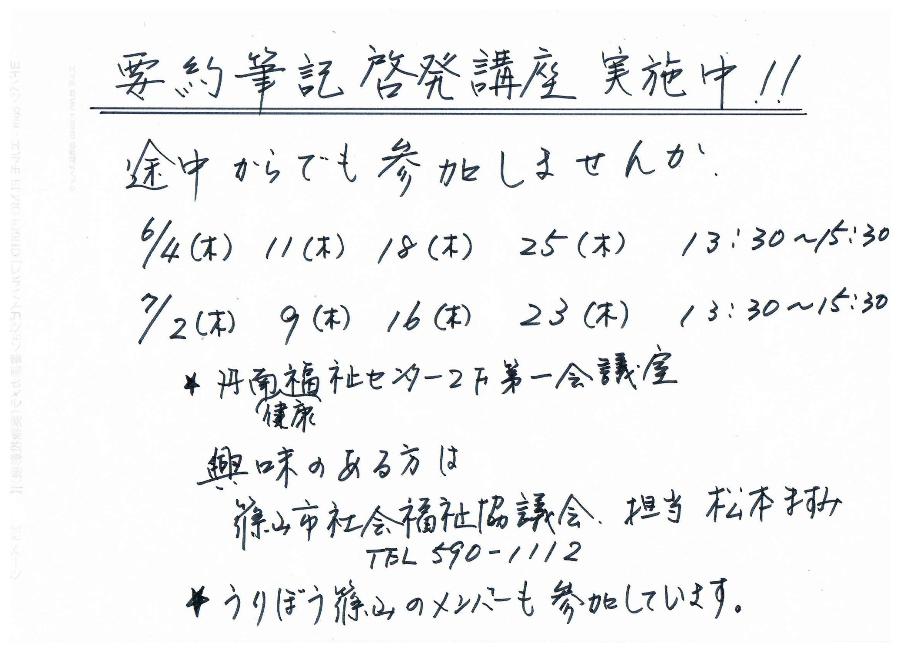 要約筆記啓発講座 実施中!!
途中からでも参加しませんか.
6/4(木) 11(木) 18(木) 25(木) 13:30〜15:30
7/2(木) 9(木) 16(木) 23(木) 13:30〜15:30
* 丹南健康福祉センター2F第一会議室
興味のある方は
篠山市社会福祉協議会. 担当 松本ますみ
TEL 590-1112
* うりぼう篠山のメンバーも参加しています。